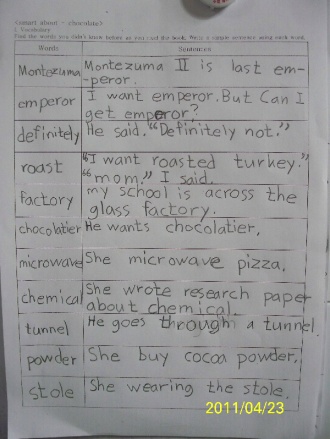 <smart about - chocolate>
1. Vocabulary
Find the words you didn't know before as you read the book. Write a simple sentence using each word.
Words Sentences
Montezuma Montezuma II is last em-
-peror.
emperor I want emperor. But Can I
get emperor?
definitely He said. "Definitely not."
roast "I want roasted turkey."
"mom." I said.
factory my school is across the
glass factory.
chocolatier He wants chocolatier.
microwave She microwave pizza.
chemical She wrote research paper
about chemical.
tunnel He goes through a tunnel
powder She buy cocoa powder.
stole She wearing the stole.
2011/04/23